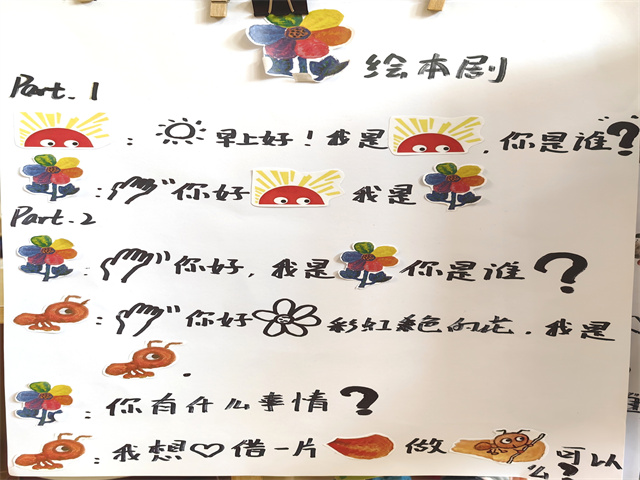 绘本剧
Part.1
: 早上好！我是 ,你是谁?
: 你好 我是
Part.2
: 你好,我是 你是谁?
: 你好 彩虹色的花,我是
.
: 你有什么事情?
: 我想 借一片 做 可以
么?